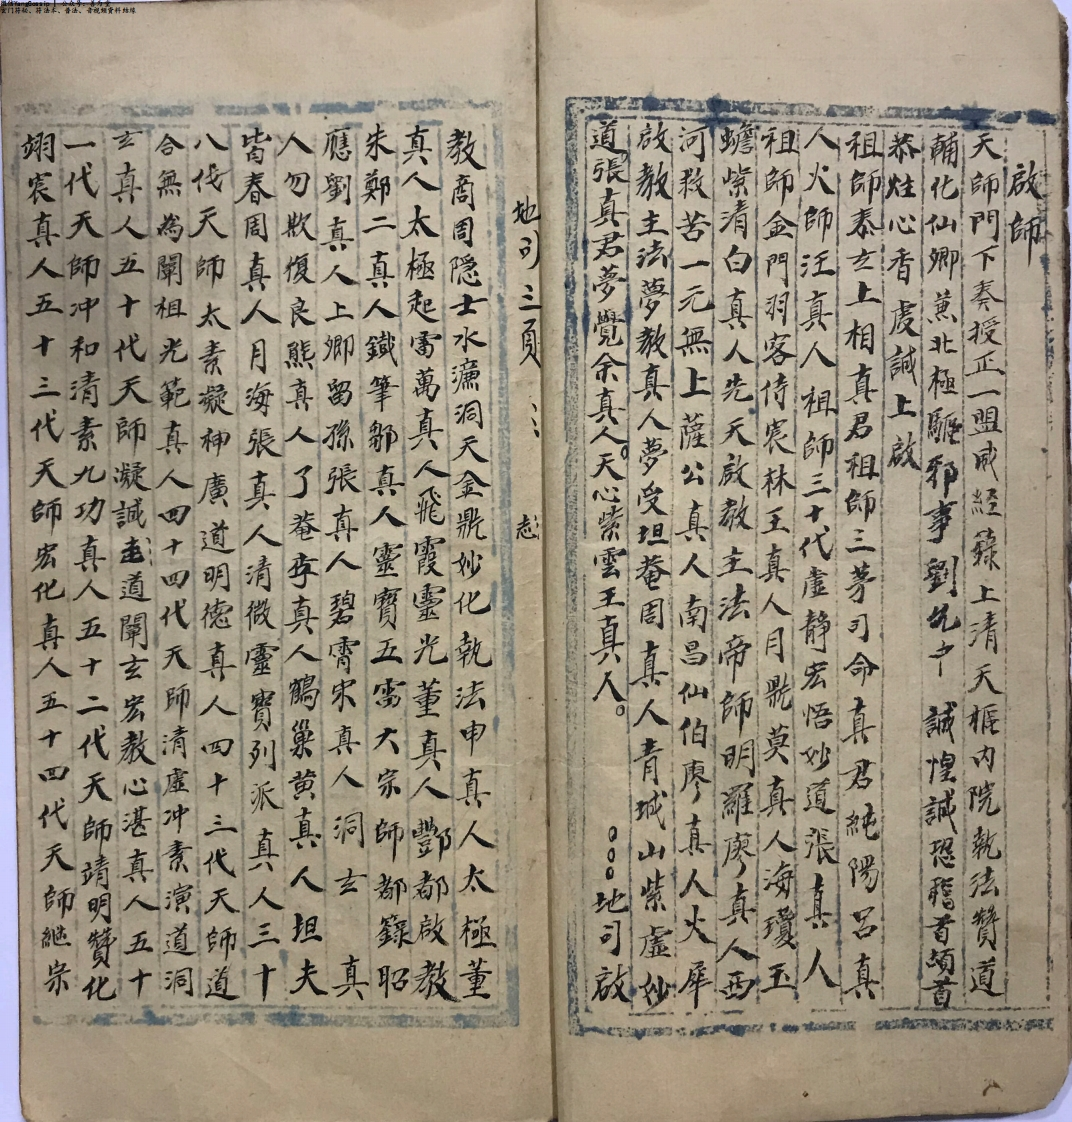 啟師
天師門下奏授正一盟威經籙上清天樞內院執法贊道
輔化仙卿兼北極驅邪事劉 誠惶誠恐稽首頓首
恭炷心香虔誠上啟
祖師泰玄上相真君祖師三茅司命真君純陽呂真
人火師汪真人祖師三十代虛静宏悟妙道張真人
祖師金門羽客侍宸林王真人月鼎莫真人海瓊玉
蟾紫清白真人先天啟教主法帝師明羅廖真人西
河救苦一元無上薩公真人南昌仙伯廖真人火犀
啟教主法夢教真人夢受坦菴周真人青城山紫虛妙
道張真君夢覺余真人。天心紫雲王真人。 。。。地司啟
地司三頁 志
教商周隱士水濂洞天金鼎妙化執法申真人太極董
真人太極起雷萬真人飛霞靈光董真人酆都啟教
朱鄭二真人鐵筆鄒真人靈寶五雷大宗師都籙昭
應劉真人上卿留孫張真人碧霄宋真人洞玄 真
人勿欺復良熊真人了菴李真人鶴巢黄真人坦夫
皆春周真人月海張真人清微靈寶列派真人三十
八代天師太素凝神廣道明德真人四十三代天師道
合無為闡祖光範真人四十四代天師清虛冲素演道洞
玄真人五十代天師凝誠道闡玄宏教心湛真人五十
一代天師冲和清素九功真人五十二代天師靖明贊化
翊宸真人五十三代天師宏化真人五十四代天師継宗